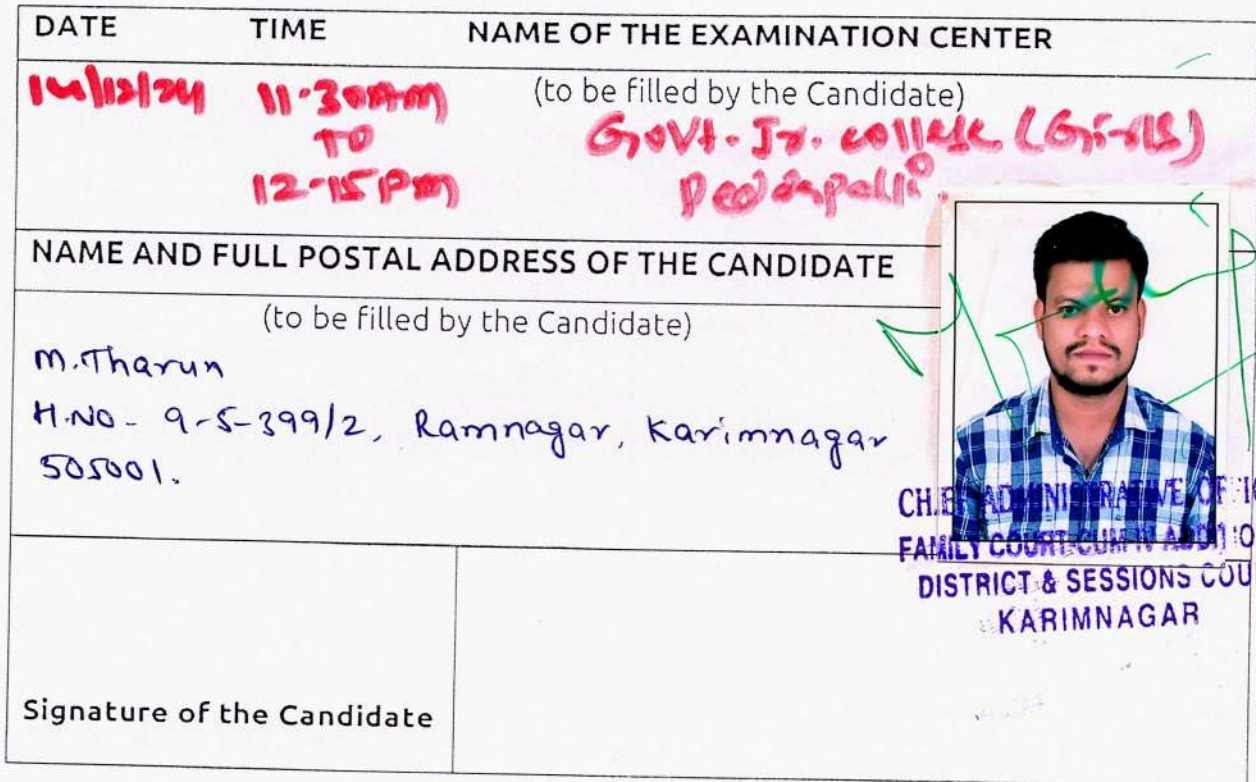 DATE TIME NAME OF THE EXAMINATION CENTER
14/12/24 11-30AM (to be filled by the Candidate)
TO Govt. Jr. college (Girls)
12-15 PM Peddapalli.
NAME AND FULL POSTAL ADDRESS OF THE CANDIDATE
(to be filled by the Candidate)
M.Tharun
H.NO - 9-5-399/2, Ramnagar, Karimnagar
505001.
CHIEF ADMINISTRATIVE OFFIC
FAMILY COURT-CUM-IV ADDITIO
DISTRICT & SESSIONS COU
KARIMNAGAR
Signature of the Candidate